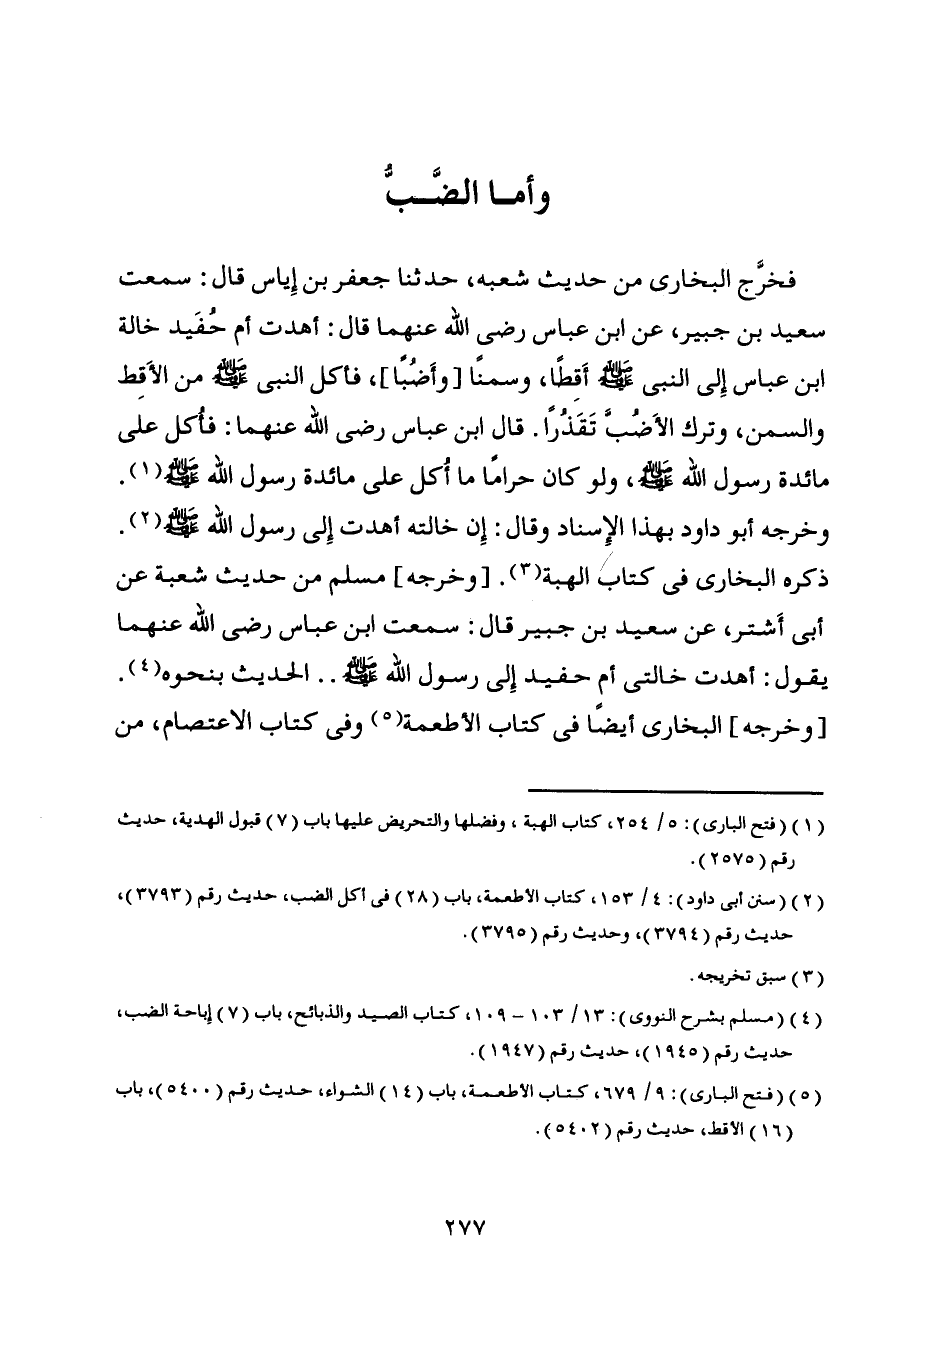 وأمـا الضَّـبُّ
فخرَّج البخارى من حديث شعبه، حدثنا جعفر بن إياس قال: سمعت
سعيد بن جبير، عن ابن عباس رضى الله عنهما قال: أهدت أم حُفَيد خالة
ابن عباس إلى النبى ﷺ أَقِطًا، وسمنًا [وأضُبًا]، فأكل النبى ﷺ من الأَقِط
والسمن، وترك الأضُبَّ تَقَذُرًا. قال ابن عباس رضى الله عنهما: فأُكل على
مائدة رسول الله ﷺ، ولو كان حرامًا ما أُكل على مائدة رسول الله ﷺ(١).
وخرجه أبو داود بهذا الإسناد وقال: إن خالته أهدت إلى رسول الله ﷺ(٢).
ذكره البخارى فى كتاب الهبة(٣). [وخرجه] مسلم من حديث شعبة عن
أبى أَشتر، عن سعيد بن جبير قال: سمعت ابن عباس رضى الله عنهما
يقول: أهدت خالتى أم حفيد إلى رسول الله ﷺ.. الحديث بنحوه(٤).
[وخرجه] البخارى أيضًا فى كتاب الأطعمة(٥) وفى كتاب الاعتصام، من
(١) (فتح البارى): ٥/ ٢٥٤، كتاب الهبة ، وفضلها والتحريض عليها باب (٧) قبول الهدية، حديث
رقم (٢٥٧٥).
(٢) (سنن أبى داود): ٤/ ١٥٣، كتاب الأطعمة، باب (٢٨) فى أكل الضب، حديث رقم (٣٧٩٣)،
حديث رقم (٣٧٩٤)، وحديث رقم (٣٧٩٥).
(٣) سبق تخريجه.
(٤) (مسلم بشرح النووى): ١٣/ ١٠٣ – ١٠٩، كتاب الصيد والذبائح، باب (٧) إباحة الضب،
حديث رقم (١٩٤٥)، حديث رقم (١٩٤٧).
(٥) (فتح البارى): ٩/ ٦٧٩، كتاب الأطعمة، باب (١٤) الشواء، حديث رقم (٥٤٠٠)، باب
(١٦) الأقط، حديث رقم (٥٤٠٢).
٢٧٧